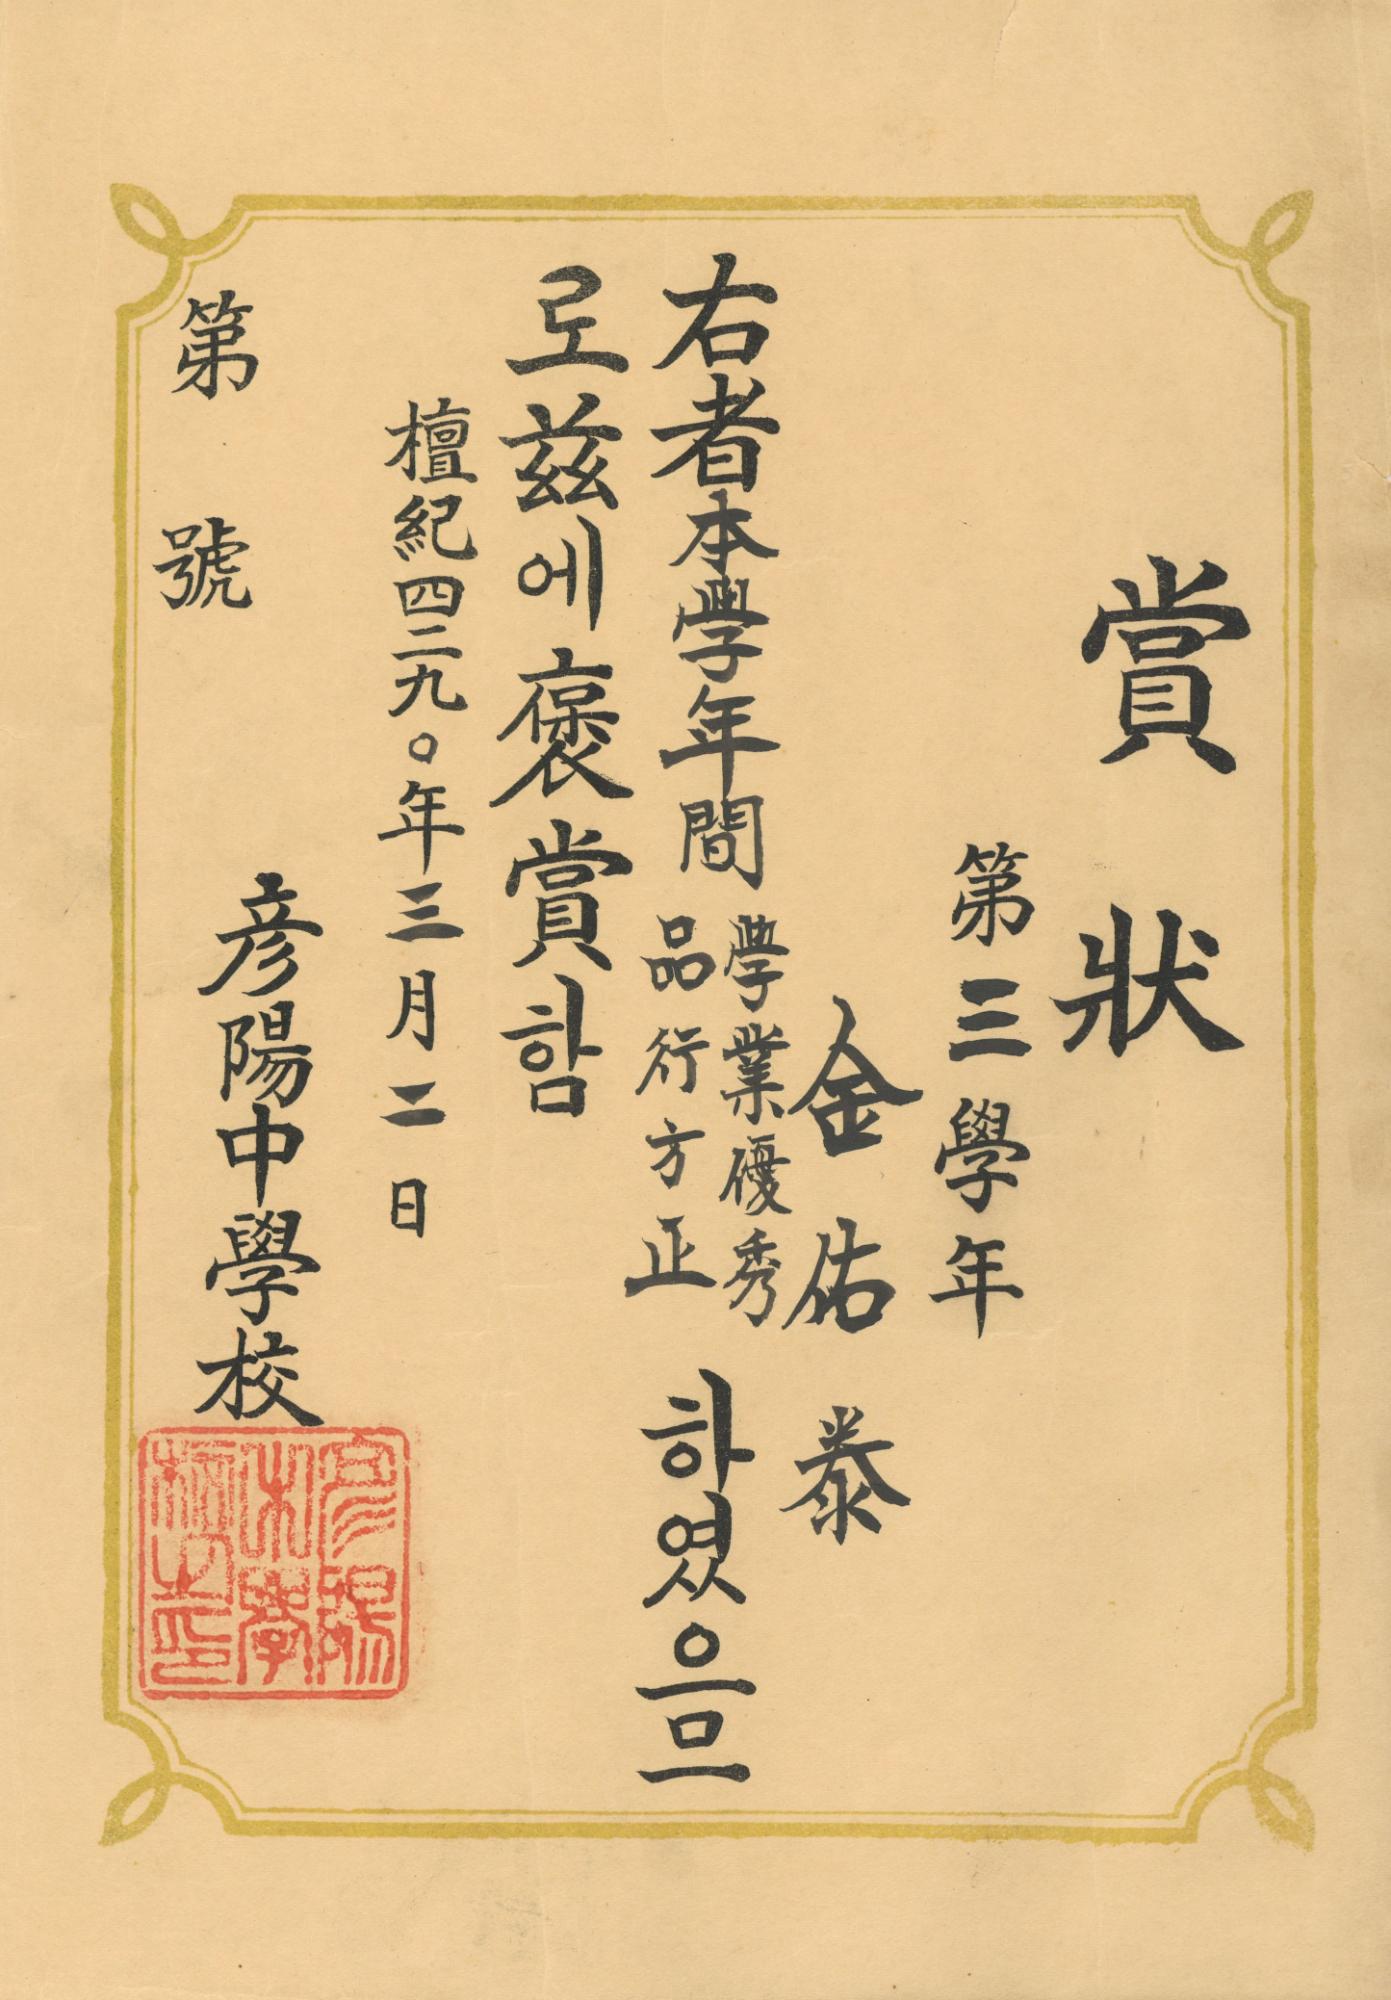 賞狀
第三學年
金佑泰
右者本學年間
學業優秀
品行方正
하였으므
로玆에褒賞함
檀紀四二九〇年三月二日
彦陽中學校
第 號